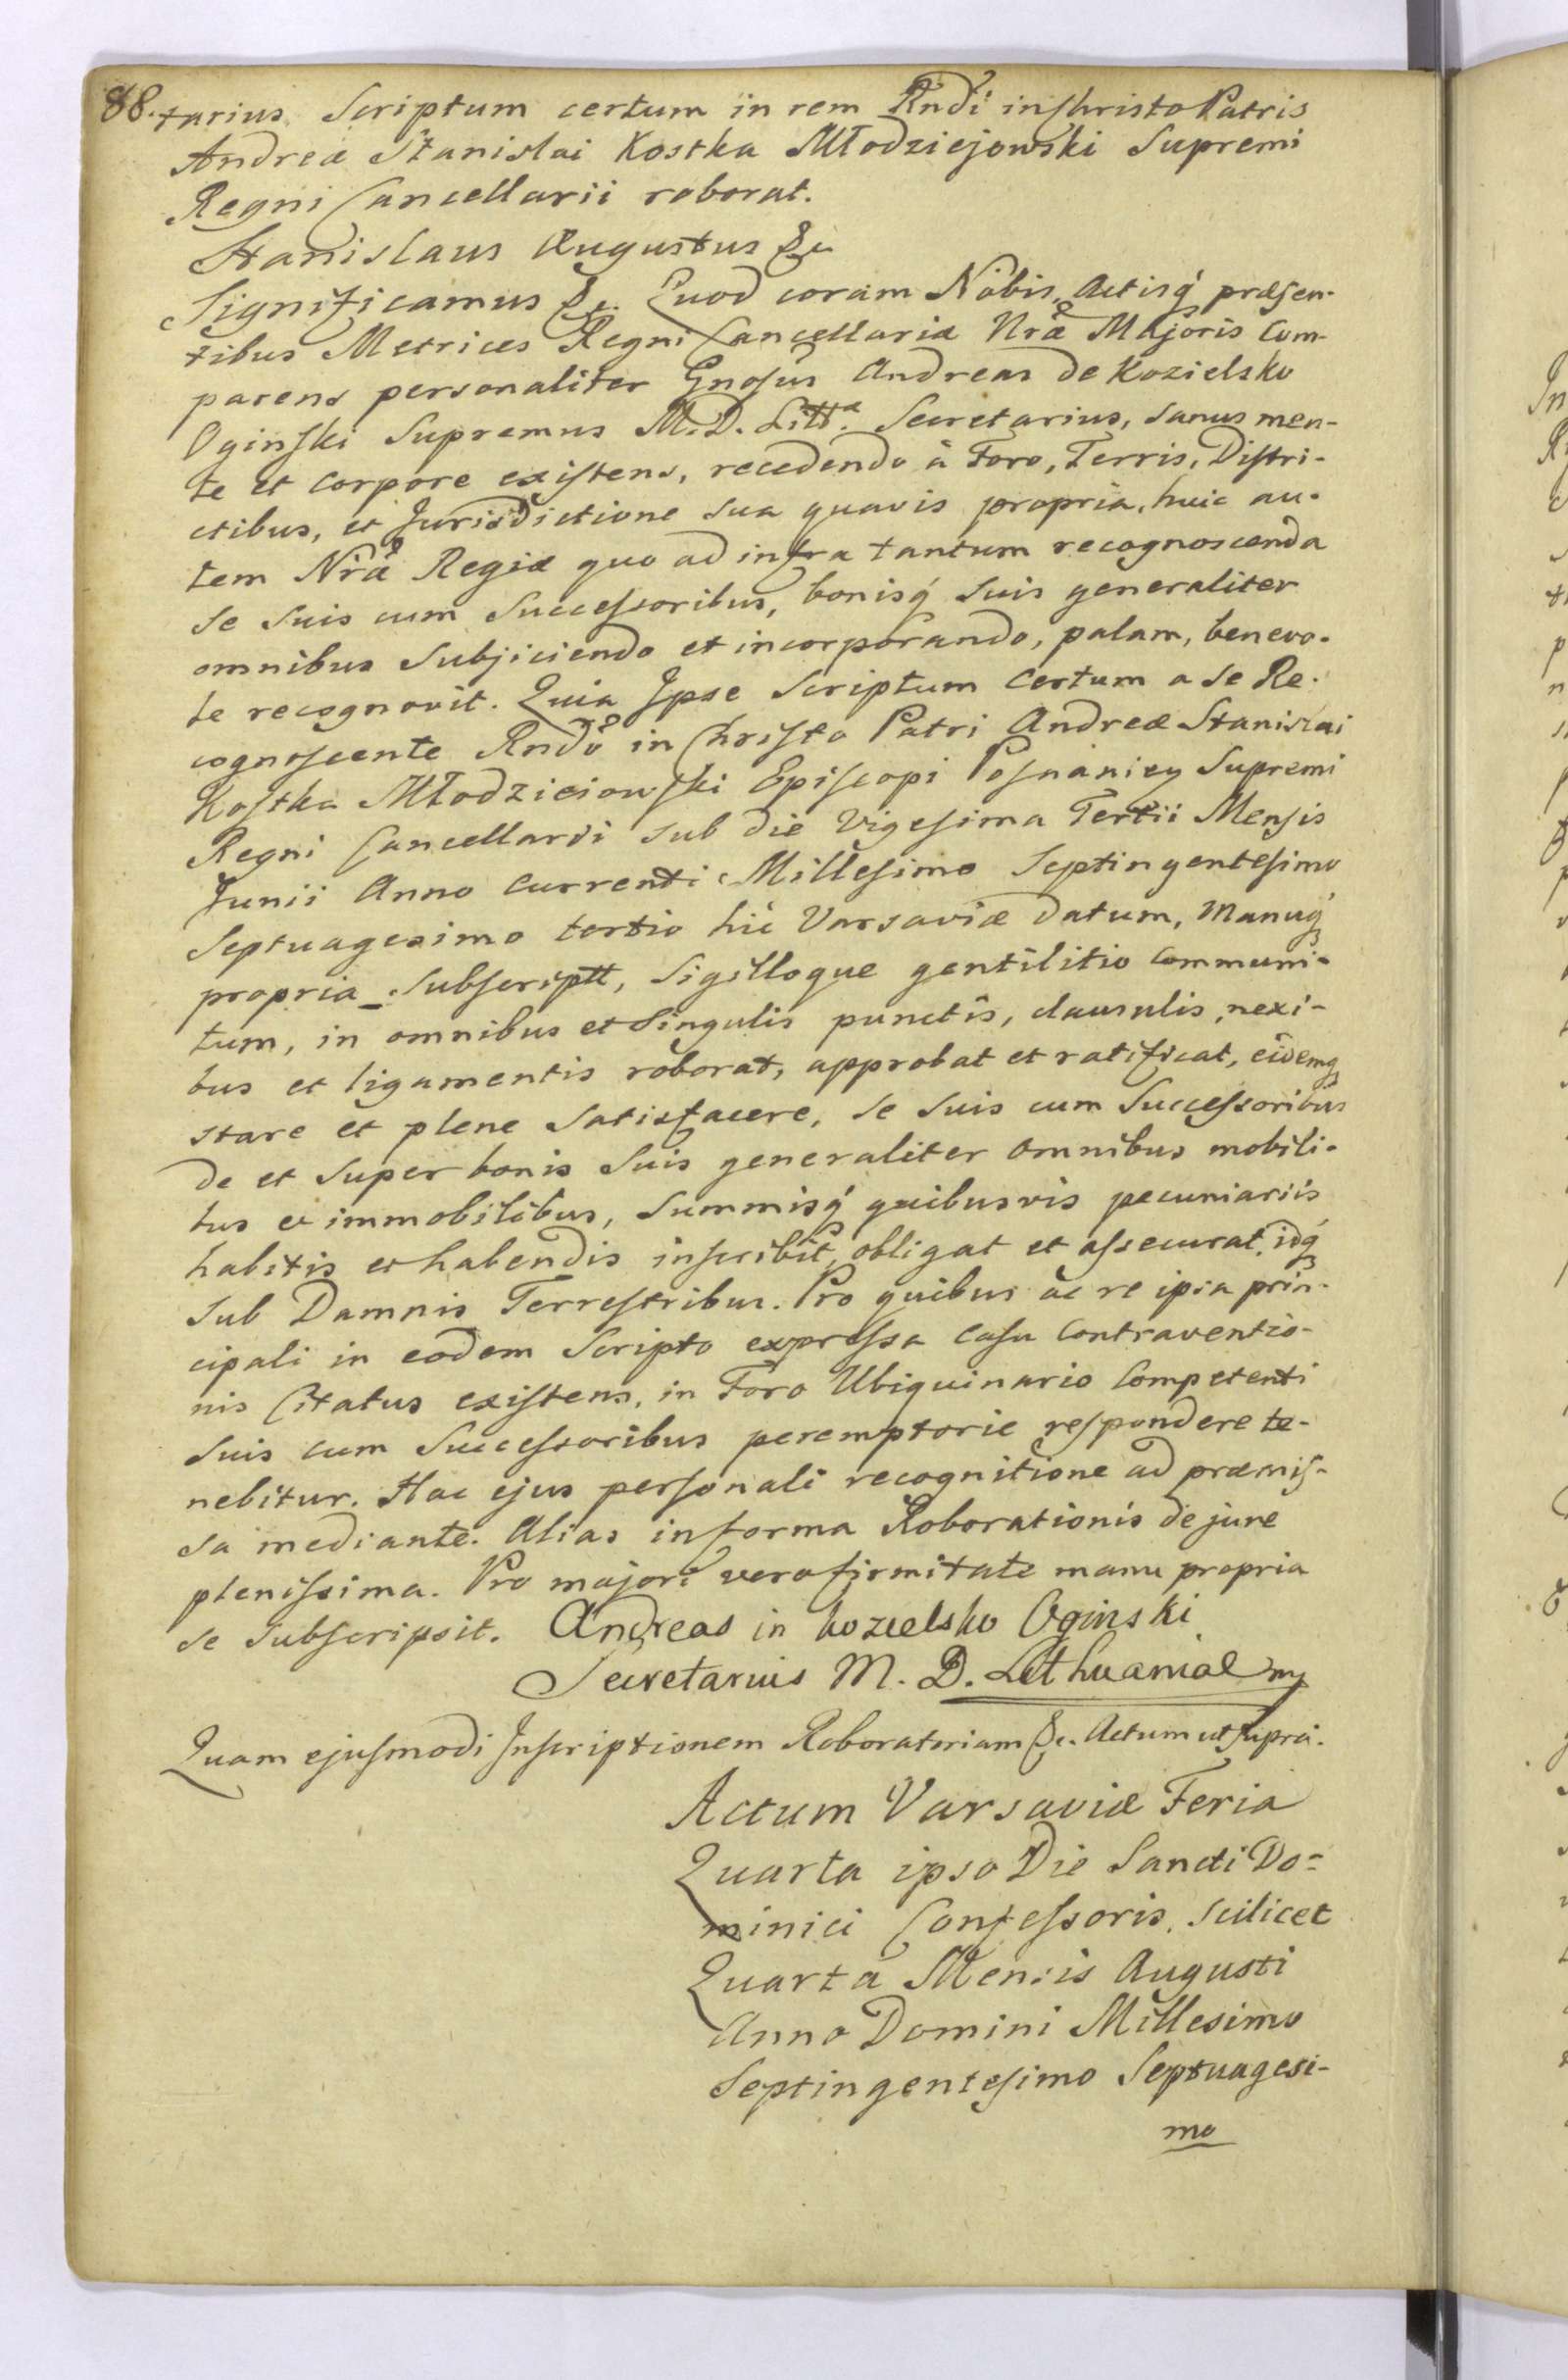 88. tarius Scriptum certum in rem Rndi in Christo Patris
Andreæ Stanislai Kostka Młodziejowski Supremi
Regni Cancellarii roborat.
Stanislaus Augustus &c
Significamus &c. Quod coram Nobis, Actisq́ præsen-
tibus Metrices Regni Cancellariæ Nræ Majoris Com-
parens personaliter Gnosus Andreas de Kozielsko
Oginski Supremus M. D. Litt. Secretarius, sanus men-
te et corpore existens, recedendo à Foro, Terris, Distri-
ctibus, et Jurisdictione sua quavis propria, huic au-
tem Nræ Regiæ quo ad infra tantum recognoscenda
se suis cum Successoribus, bonisq́ suis generaliter
omnibus subjiciendo et incorporando, palam, benevo-
te recognovit. Quia Ipse Scriptum Certum a se Re-
cognoscente Rndo in Christo Patri Andreæ Stanislai
Kostka Młodzieiowski Episcopi Posnaniey Supremi
Regni Cancellarii sub die Vigesima Tertii Mensis
Junii Anno Currenti Millesimo Septingentesimo
Septuagesimo tertio hic Varsaviæ datum, Manuq́
propria subscriptt, Sigilloque gentilitio Communi-
tum, in omnibus et singulis punctis, clausulis, nexi-
bus et ligamentis roborat, approbat et ratificat, eidemq
stare et plene satisfacere, se suis cum Successoribus
de et super bonis suis generaliter omnibus mobili-
bus et immobilibus, summisq́ quibusvis pecuniariis
habitis et habendis inscribit, obligat et assecurat, idq́
sub Damnis Terrestribus. Pro quibus ac re ipsa prin-
cipali in eodem Scripto expressa casu Contraventio-
nis Citatus existens, in Foro Ubiquinario Competenti
suis cum Successoribus peremptorie respondere te-
nebitur. Hac ejus personali recognitione ad præmis-
sa mediante. Alias in forma Roborationis de jure
plenissima. Pro majori vero firmitate manu propria
se subscripsit. Andreas in Kozielsko Oginski
Secretarius M. D. Lithuaniae mp
Quam ejusmodi Inscriptionem Roboratoriam &c. Actum ut supra.
Actum Varsaviæ Feria
Quarta ipso Die Sancti Do=
minici Confessoris, scilicet
Quarta Mensis Augusti
Anno Domini Millesimo
Septingentesimo Septuagesi-
mo